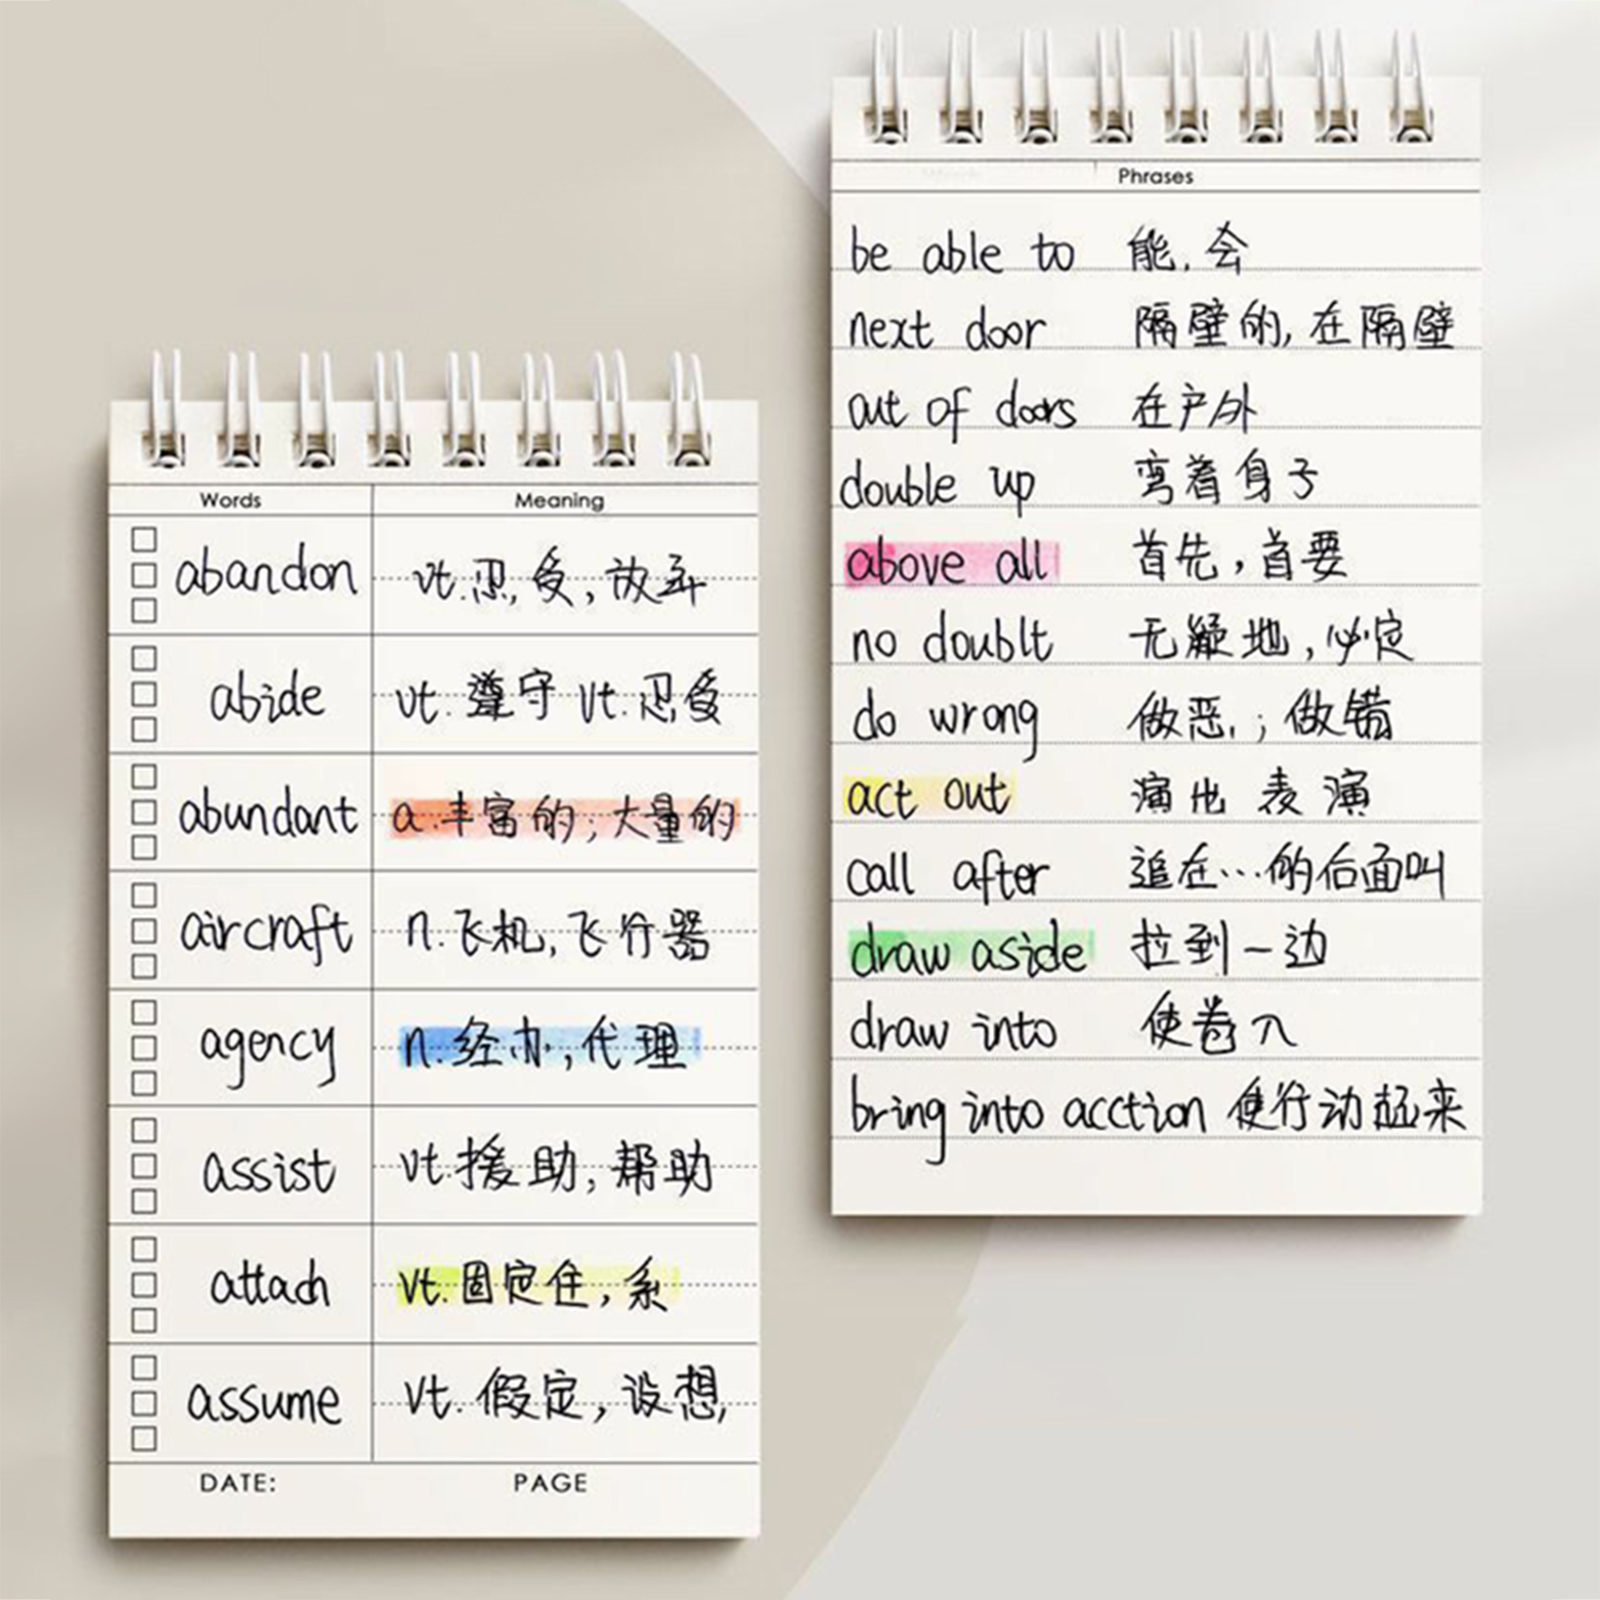 Words Meaning
abandon vt.忍,受,放弃
abide vt.遵守 vt.忍受
abundant a.丰富的;大量的
aircraft n.飞机,飞行器
agency n.经办,代理
assist vt.援助,帮助
attach vt.固定住,系
assume vt.假定,设想,
DATE: PAGE
Phrases
be able to 能,会
next door 隔壁的,在隔壁
out of doors 在户外
double up 弯着身子
above all 首先,首要
no doublt 无疑地,必定
do wrong 做恶,;做错
act out 演出 表演
call after 追在…的后面叫
draw aside 拉到一边
draw into 使卷入
bring into acction 使行动起来